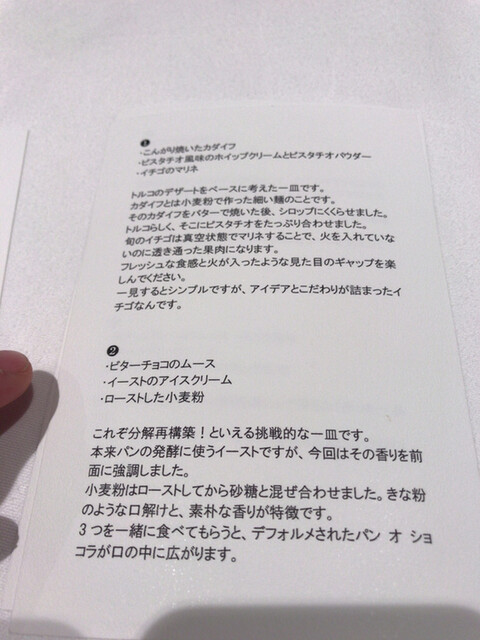 ❶
・こんがり焼いたカダイフ
・ピスタチオ風味のホイップクリームとピスタチオパウダー
・イチゴのマリネ
トルコのデザートをベースに考えた一皿です。
カダイフとは小麦粉で作った細い麺のことです。
そのカダイフをバターで焼いた後、シロップにくぐらせました。
トルコらしく、そこにピスタチオをたっぷり合わせました。
旬のイチゴは真空状態でマリネすることで、火を入れていな
いのに透き通った果肉になります。
フレッシュな食感と火が入ったような見た目のギャップを楽
しんでください。
一見するとシンプルですが、アイデアとこだわりが詰まったイ
チゴなんです。
❷
・ビターチョコのムース
・イーストのアイスクリーム
・ローストした小麦粉
これぞ分解再構築！といえる挑戦的な一皿です。
本来パンの発酵に使うイーストですが、今回はその香りを前
面に強調しました。
小麦粉はローストしてから砂糖と混ぜ合わせました。きな粉
のような口解けと、素朴な香りが特徴です。
３つを一緒に食べてもらうと、デフォルメされたパン オ ショ
コラが口の中に広がります。